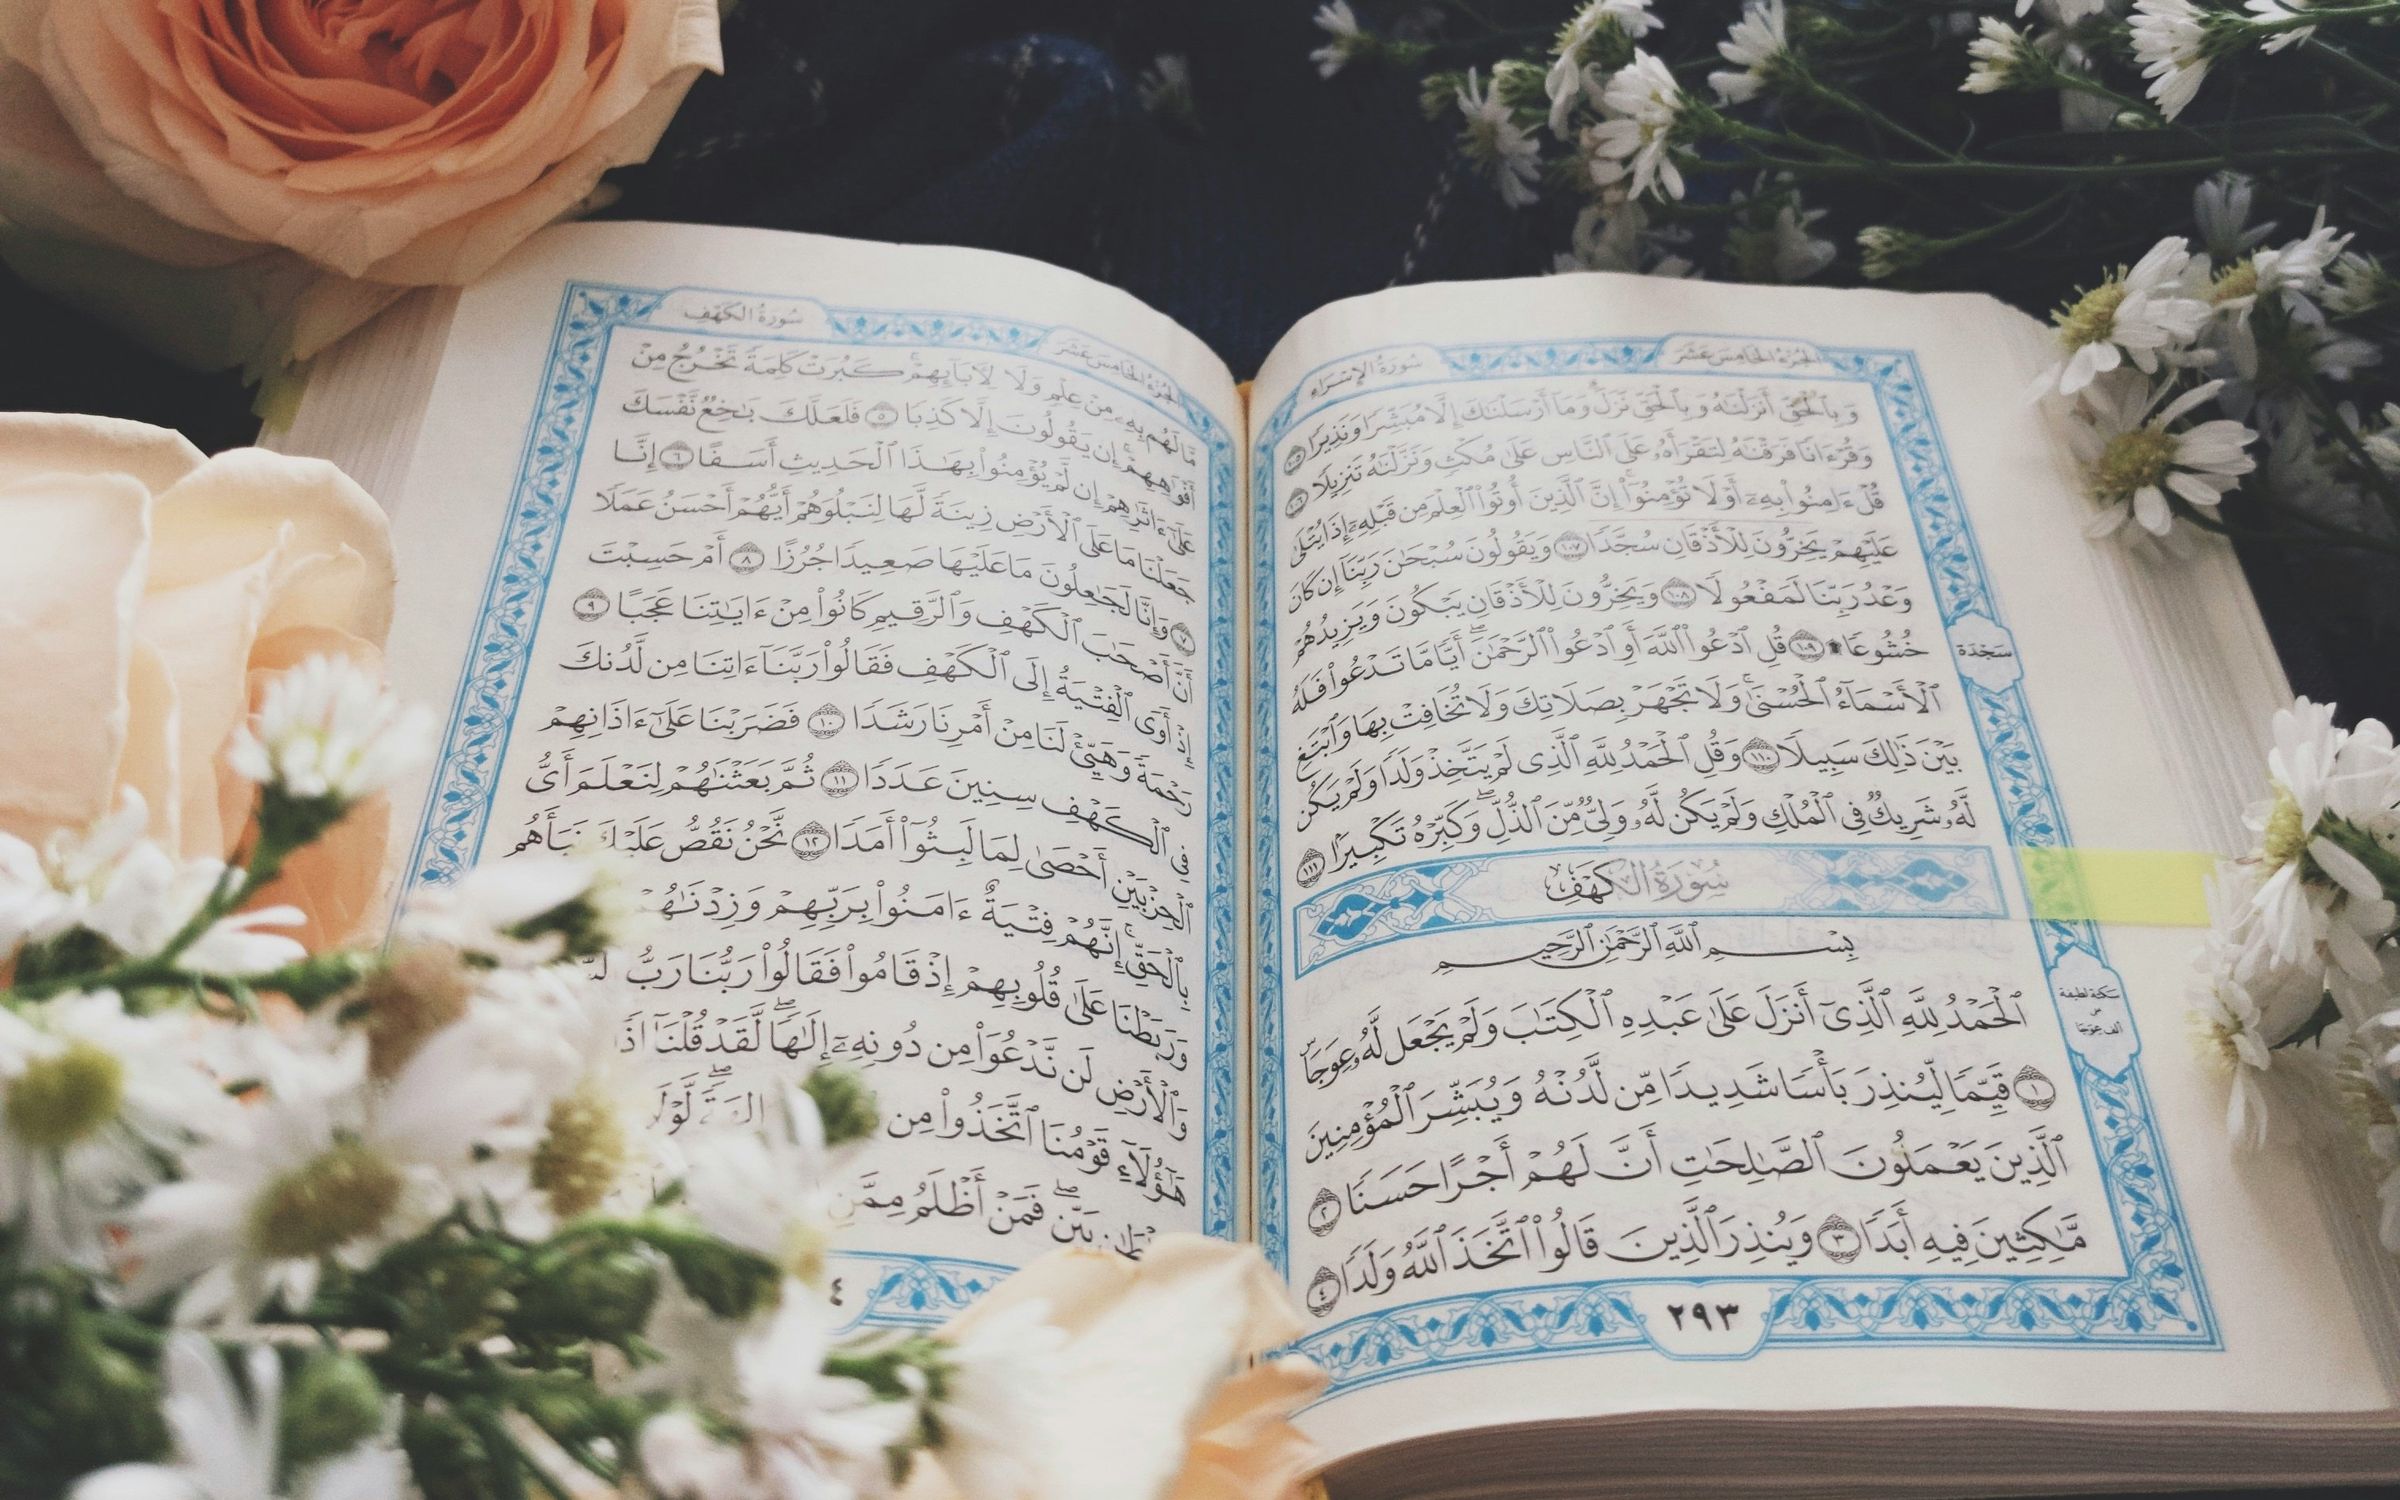 سُورَةُ الإِسْرَاءِ
الجُزْءُ الخَامِسَ عَشَرَ
وَبِالْحَقِّ أَنزَلْنَٰهُ وَبِالْحَقِّ نَزَلَ وَمَآ أَرْسَلْنَٰكَ إِلَّا مُبَشِّرًا وَنَذِيرًا ١٠٥
وَقُرْءَانًا فَرَقْنَٰهُ لِتَقْرَأَهُۥ عَلَى ٱلنَّاسِ عَلَىٰ مُكْثٍ وَنَزَّلْنَٰهُ تَنزِيلًا ١٠٦
قُلْ ءَامِنُوا۟ بِهِۦٓ أَوْ لَا تُؤْمِنُوٓا۟ إِنَّ ٱلَّذِينَ أُوتُوا۟ ٱلْعِلْمَ مِن قَبْلِهِۦٓ إِذَا يُتْلَىٰ
عَلَيْهِمْ يَخِرُّونَ لِلْأَذْقَانِ سُجَّدًا ١٠٧ وَيَقُولُونَ سُبْحَٰنَ رَبِّنَآ إِن كَانَ
وَعْدُ رَبِّنَا لَمَفْعُولًا ١٠٨ وَيَخِرُّونَ لِلْأَذْقَانِ يَبْكُونَ وَيَزِيدُهُمْ
خُشُوعًا ۩ ١٠٩ قُلِ ٱدْعُوا۟ ٱللَّهَ أَوِ ٱدْعُوا۟ ٱلرَّحْمَٰنَ ۖ أَيًّا مَّا تَدْعُوا۟ فَلَهُ
سَجْدَة
ٱلْأَسْمَآءُ ٱلْحُسْنَىٰ ۚ وَلَا تَجْهَرْ بِصَلَاتِكَ وَلَا تُخَافِتْ بِهَا وَٱبْتَغِ
بَيْنَ ذَٰلِكَ سَبِيلًا ١١٠ وَقُلِ ٱلْحَمْدُ لِلَّهِ ٱلَّذِى لَمْ يَتَّخِذْ وَلَدًا وَلَمْ يَكُن
لَّهُۥ شَرِيكٌ فِى ٱلْمُلْكِ وَلَمْ يَكُن لَّهُۥ وَلِىٌّ مِّنَ ٱلذُّلِّ ۖ وَكَبِّرْهُ تَكْبِيرًۢا ١١١
سُورَةُ الكَهْفِ
بِسْمِ ٱللَّهِ ٱلرَّحْمَٰنِ ٱلرَّحِيمِ
ٱلْحَمْدُ لِلَّهِ ٱلَّذِىٓ أَنزَلَ عَلَىٰ عَبْدِهِ ٱلْكِتَٰبَ وَلَمْ يَجْعَل لَّهُۥ عِوَجَاۜ
سكتة لطيفة
على
ألف عوجا
١ قَيِّمًا لِّيُنذِرَ بَأْسًا شَدِيدًا مِّن لَّدُنْهُ وَيُبَشِّرَ ٱلْمُؤْمِنِينَ
ٱلَّذِينَ يَعْمَلُونَ ٱلصَّٰلِحَٰتِ أَنَّ لَهُمْ أَجْرًا حَسَنًا ٢
مَّٰكِثِينَ فِيهِ أَبَدًا ٣ وَيُنذِرَ ٱلَّذِينَ قَالُوا۟ ٱتَّخَذَ ٱللَّهُ وَلَدًا ٤
٢٩٣
سُورَةُ الكَهْفِ
الجُزْءُ الخَامِسَ عَشَرَ
مَّا لَهُم بِهِۦ مِنْ عِلْمٍ وَلَا لِـَٔابَآئِهِمْ ۚ كَبُرَتْ كَلِمَةً تَخْرُجُ مِنْ
أَفْوَٰهِهِمْ ۚ إِن يَقُولُونَ إِلَّا كَذِبًا ٥ فَلَعَلَّكَ بَٰخِعٌ نَّفْسَكَ
عَلَىٰٓ ءَاثَٰرِهِمْ إِن لَّمْ يُؤْمِنُوا۟ بِهَٰذَا ٱلْحَدِيثِ أَسَفًا ٦ إِنَّا
جَعَلْنَا مَا عَلَى ٱلْأَرْضِ زِينَةً لَّهَا لِنَبْلُوَهُمْ أَيُّهُمْ أَحْسَنُ عَمَلًا
٧ وَإِنَّا لَجَٰعِلُونَ مَا عَلَيْهَا صَعِيدًا جُرُزًا ٨ أَمْ حَسِبْتَ
أَنَّ أَصْحَٰبَ ٱلْكَهْفِ وَٱلرَّقِيمِ كَانُوا۟ مِنْ ءَايَٰتِنَا عَجَبًا ٩
إِذْ أَوَى ٱلْفِتْيَةُ إِلَى ٱلْكَهْفِ فَقَالُوا۟ رَبَّنَآ ءَاتِنَا مِن لَّدُنكَ
رَحْمَةً وَهَيِّئْ لَنَا مِنْ أَمْرِنَا رَشَدًا ١٠ فَضَرَبْنَا عَلَىٰٓ ءَاذَانِهِمْ
فِى ٱلْكَهْفِ سِنِينَ عَدَدًا ١١ ثُمَّ بَعَثْنَٰهُمْ لِنَعْلَمَ أَىُّ
ٱلْحِزْبَيْنِ أَحْصَىٰ لِمَا لَبِثُوٓا۟ أَمَدًا ١٢ نَّحْنُ نَقُصُّ عَلَيْكَ نَبَأَهُم
بِٱلْحَقِّ ۚ إِنَّهُمْ فِتْيَةٌ ءَامَنُوا۟ بِرَبِّهِمْ وَزِدْنَٰهُمْ
وَرَبَطْنَا عَلَىٰ قُلُوبِهِمْ إِذْ قَامُوا۟ فَقَالُوا۟ رَبُّنَا رَبُّ
وَٱلْأَرْضِ لَن نَّدْعُوَا۟ مِن دُونِهِۦٓ إِلَٰهًا ۖ لَّقَدْ قُلْنَآ
هَٰٓؤُلَآءِ قَوْمُنَا ٱتَّخَذُوا۟ مِن
بَيِّنٍ ۖ فَمَنْ أَظْلَمُ مِمَّنِ